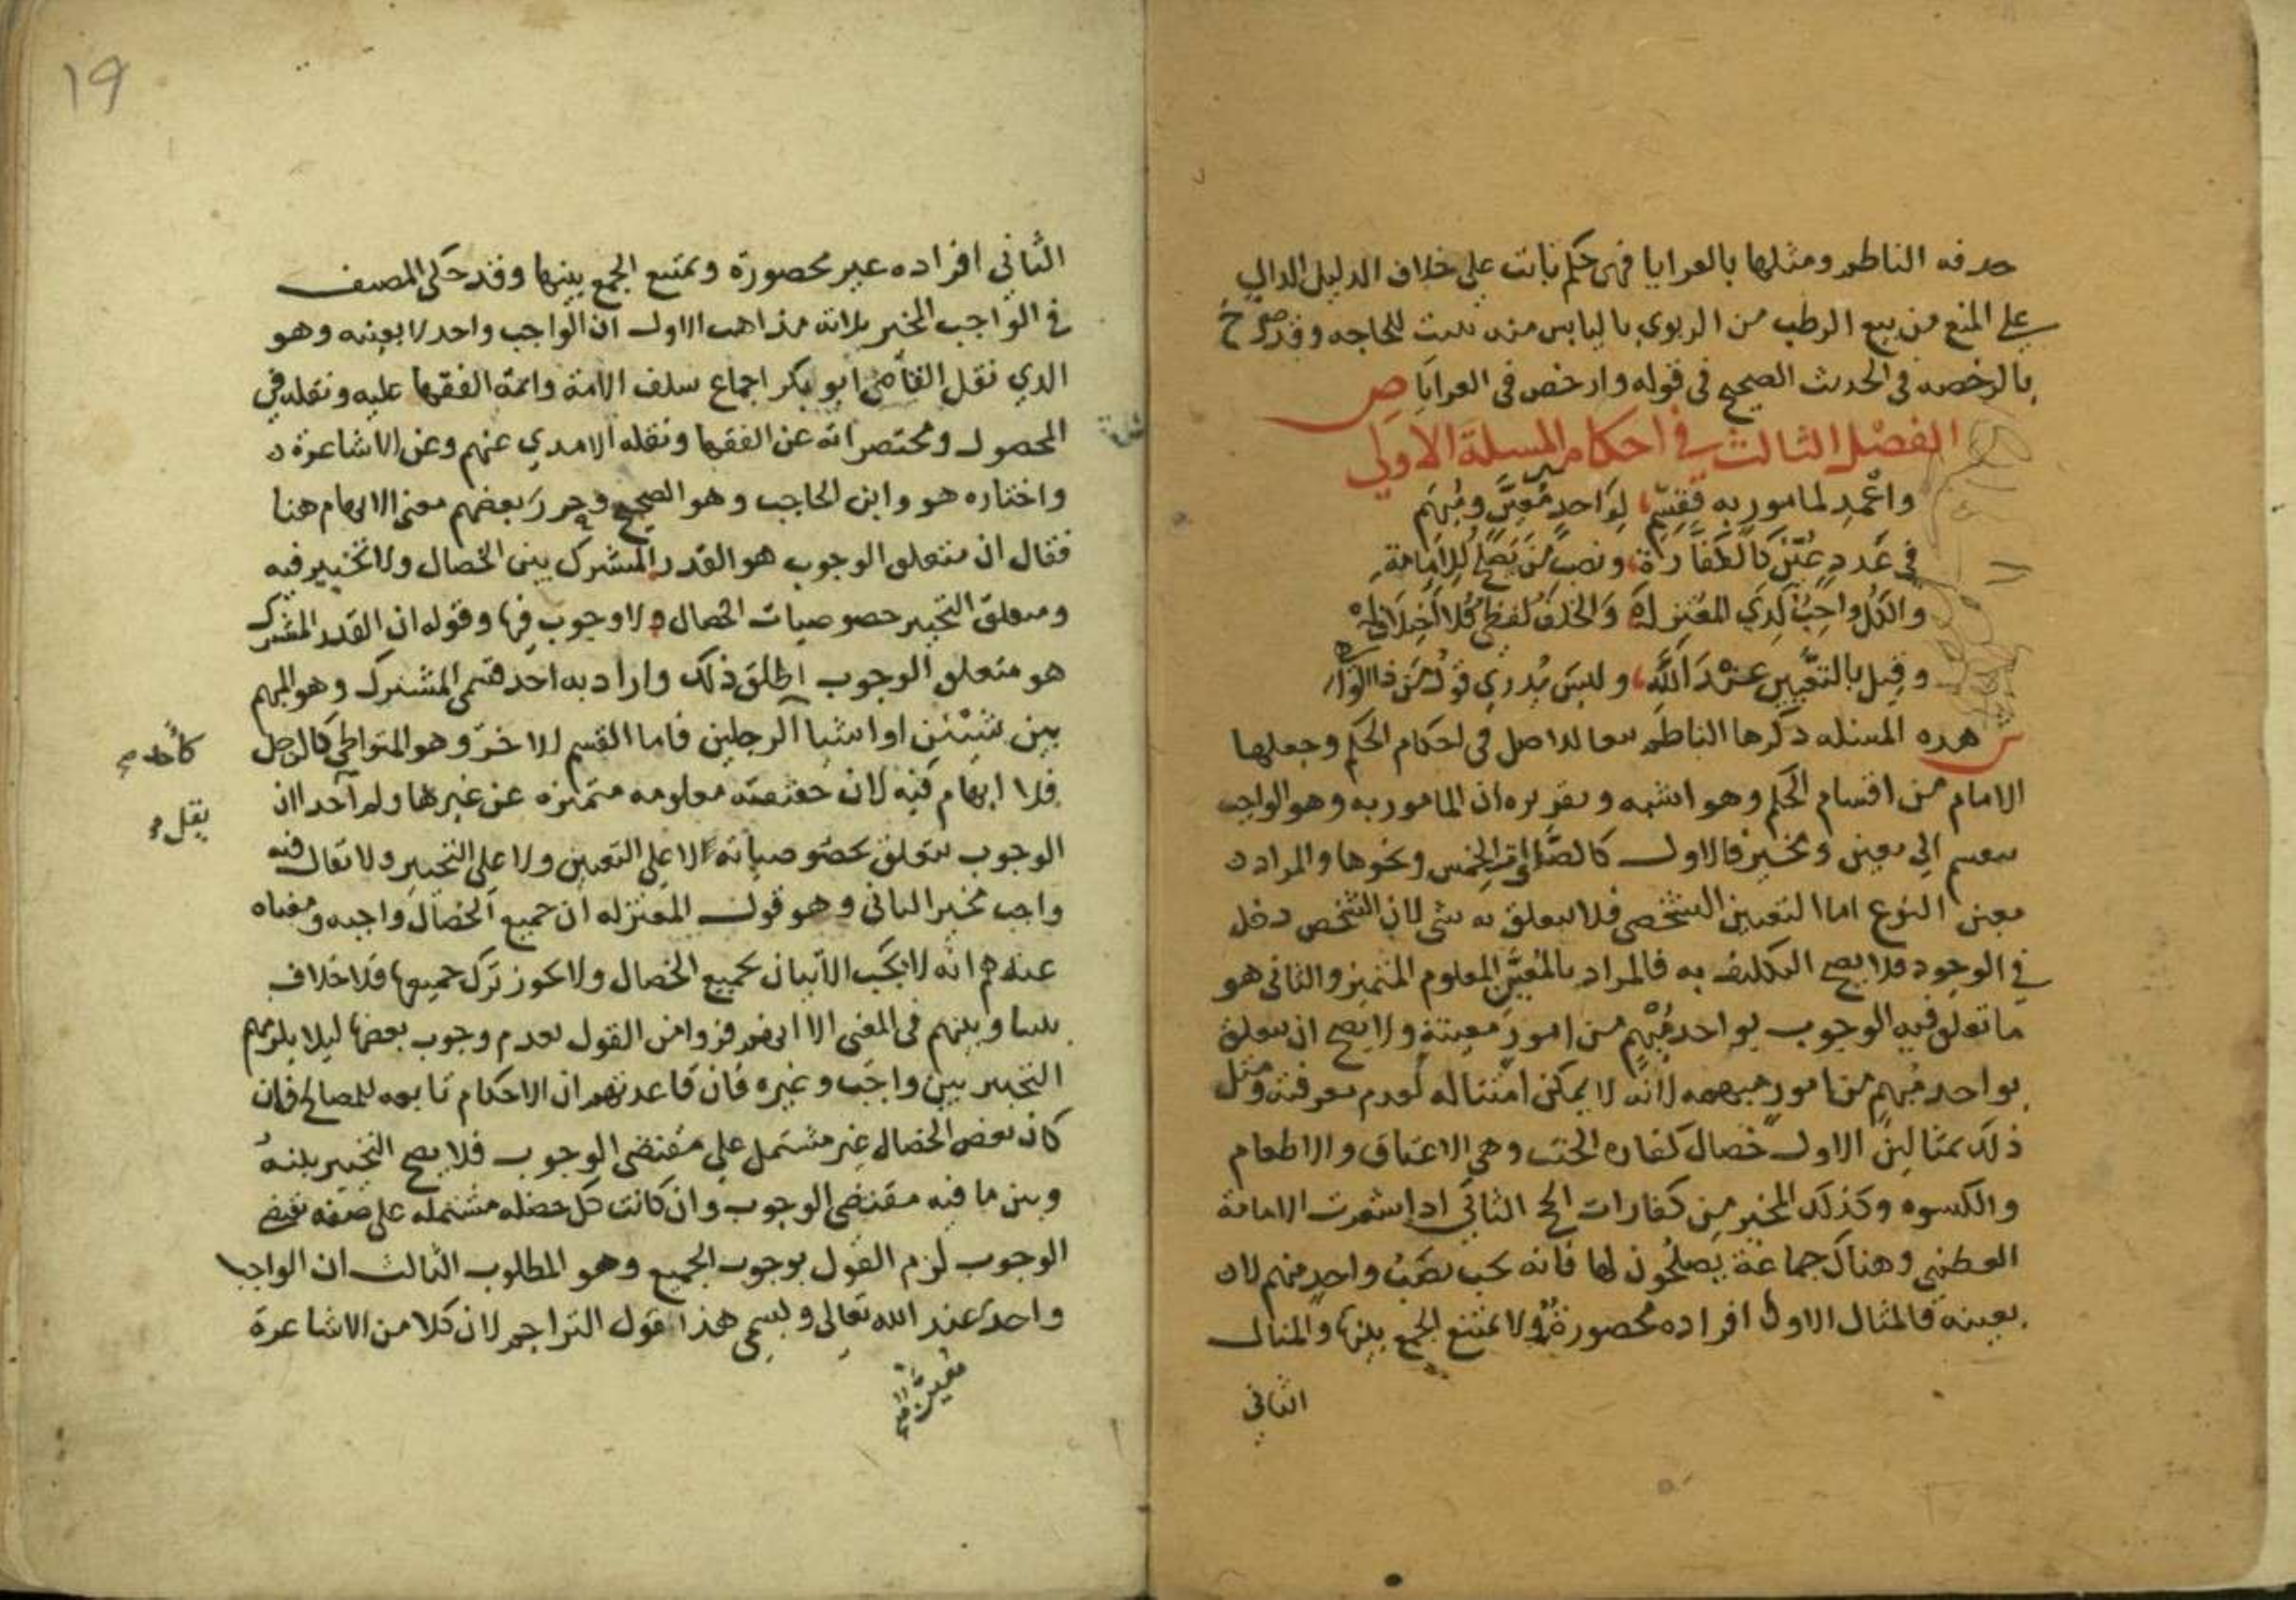 حدفه الناظم ومثلها بالعرايا فهي حكم ثابت على خلاف الدليل الدال
على المنع من بيع الرطب من الربوي باليابس منه ثبت للحاجه وقد صرح
بالرخصه في الحديث الصحيح في قوله وارخص في العرايا ص
الفصل الثالث في احكامه المسلة الاولي
واعمد لمامور به فقسم لواحد معين ومبهم
في عدد عين كالكفارة ونصب من يصلح للامامة
والكل واجب لدي المعتزلة والخلف لفظي
وقيل بالتعيين عند الله وليس يدري قول من ذا
ش هده المسئله ذكرها الناظم تبعا للاصل في احكام الحكم وجعلها
الامام من اقسام الحكم وهو اشبه وتقريره ان المامور به وهو الواجب
ينقسم الي معين ومخير فالاول كالصلوات الخمس ونحوها والمراد
معين النوع اما التعيين الشخصي فلا يتعلق به شي لان الشخص دخل
في الوجود فلا يصح التكليف به فالمراد بالمعين المعلوم المتميز والثاني هو
ما تعلق فيه الوجوب بواحد مبهم من امور معينة ولا يصح ان يتعلق
بواحد مبهم من امور مبهمه لانه لا يمكن امتثاله لعدم معرفته ومثل
ذلك بمثالين الاول خصال كفاره الحنث وهي الاعتاق والاطعام
والكسوه وكذلك المخير من كفارات الحج الثاني ادا شغرت الامامة
العظمي وهناك جماعة يصلحون لها فانه يجب نصب واحد منهم لا
بعينه فالمثال الاول افراده محصورة ولا يمتنع الجمع بينها والمثال
الثاني
١٩
الثاني افراده غير محصورة ويمتنع الجمع بينها وقد حكي المصنف
في الواجب المخير ثلاثه مذاهب الاول ان الواجب واحد لا بعينه وهو
الدي نقل القاضي ابو بكر اجماع سلف الامة وائمة الفقها عليه ونقله في
المحصول ومختصراته عن الفقها ونقله الامدي عنهم وعن الاشاعرة
واختاره هو وابن الحاجب وهو الصحيح وحرر بعضهم معني الابهام هنا
فقال ان متعلق الوجوب هو القدر المشترك بين الخصال ولا تخيير فيه
ومتعلق التخيير خصوصيات الخصال ولا وجوب فيها وقوله ان القدر المشترك
هو متعلق الوجوب اطلق ذلك واراد به احد قسمي المشترك وهو المبهم
بين شيئين او اشيا الرجلين فاما القسم الاخر وهو المتواطي كالرجل
كأحد صح
فلا ابهام فيه لان حقيقته معلومه متميزه عن غيرها ولم احد ان
يقل
الوجوب يتعلق بخصوصياته لا على التعيين ولا على التخيير ولا يقال فيه
واجب مخير الثاني وهو قول المعتزله ان جميع الخصال واجبه ومعناه
عندهم انه لا يجب الاتيان بجميع الخصال ولا يجوز ترك جميعها فلا خلاف
بيننا وبينهم في المعني الا انهم فروا من القول بعدم وجوب بعضها ليلا يلزمهم
التخيير بين واجب وغيره فان قاعدتهم ان الاحكام تابعه للمصالح فان
كان بعض الخصال غير مشتمل على مقتضي الوجوب فلا يصح التخيير بينه
وبين ما فيه مقتضي الوجوب وان كانت كل خصله مشتمله على صفه تقتضي
الوجوب لزم القول بوجوب الجميع وهو المطلوب الثالث ان الواجب
واحد عند الله تعالي ويسمي هذا قول التراجم لان كلا من الاشاعرة